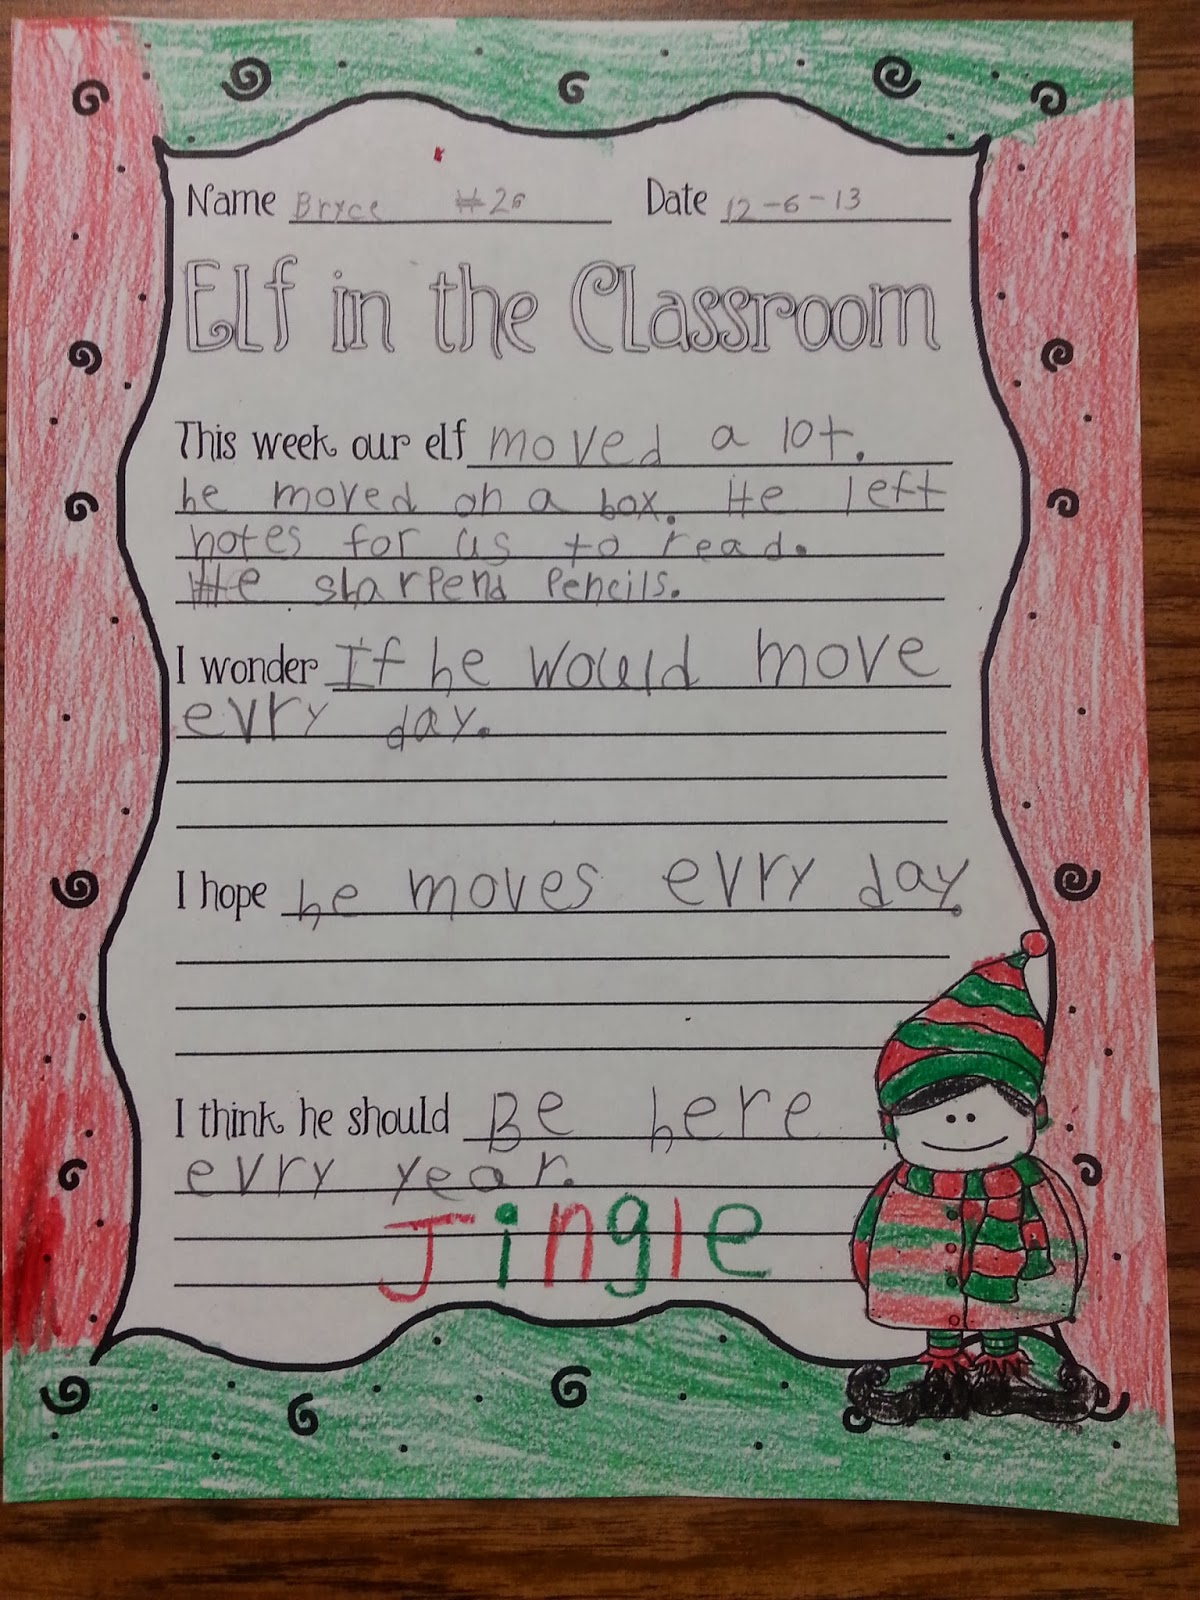 Name Bryce #26 Date 12-6-13
Elf in the Classroom
This week our elf moved a lot.
he moved on a box. He left
notes for us to read.
He sharpend pencils.
I wonder If he would move
evry day.
I hope he moves evry day.
I think he should Be here
evry year.
Jingle